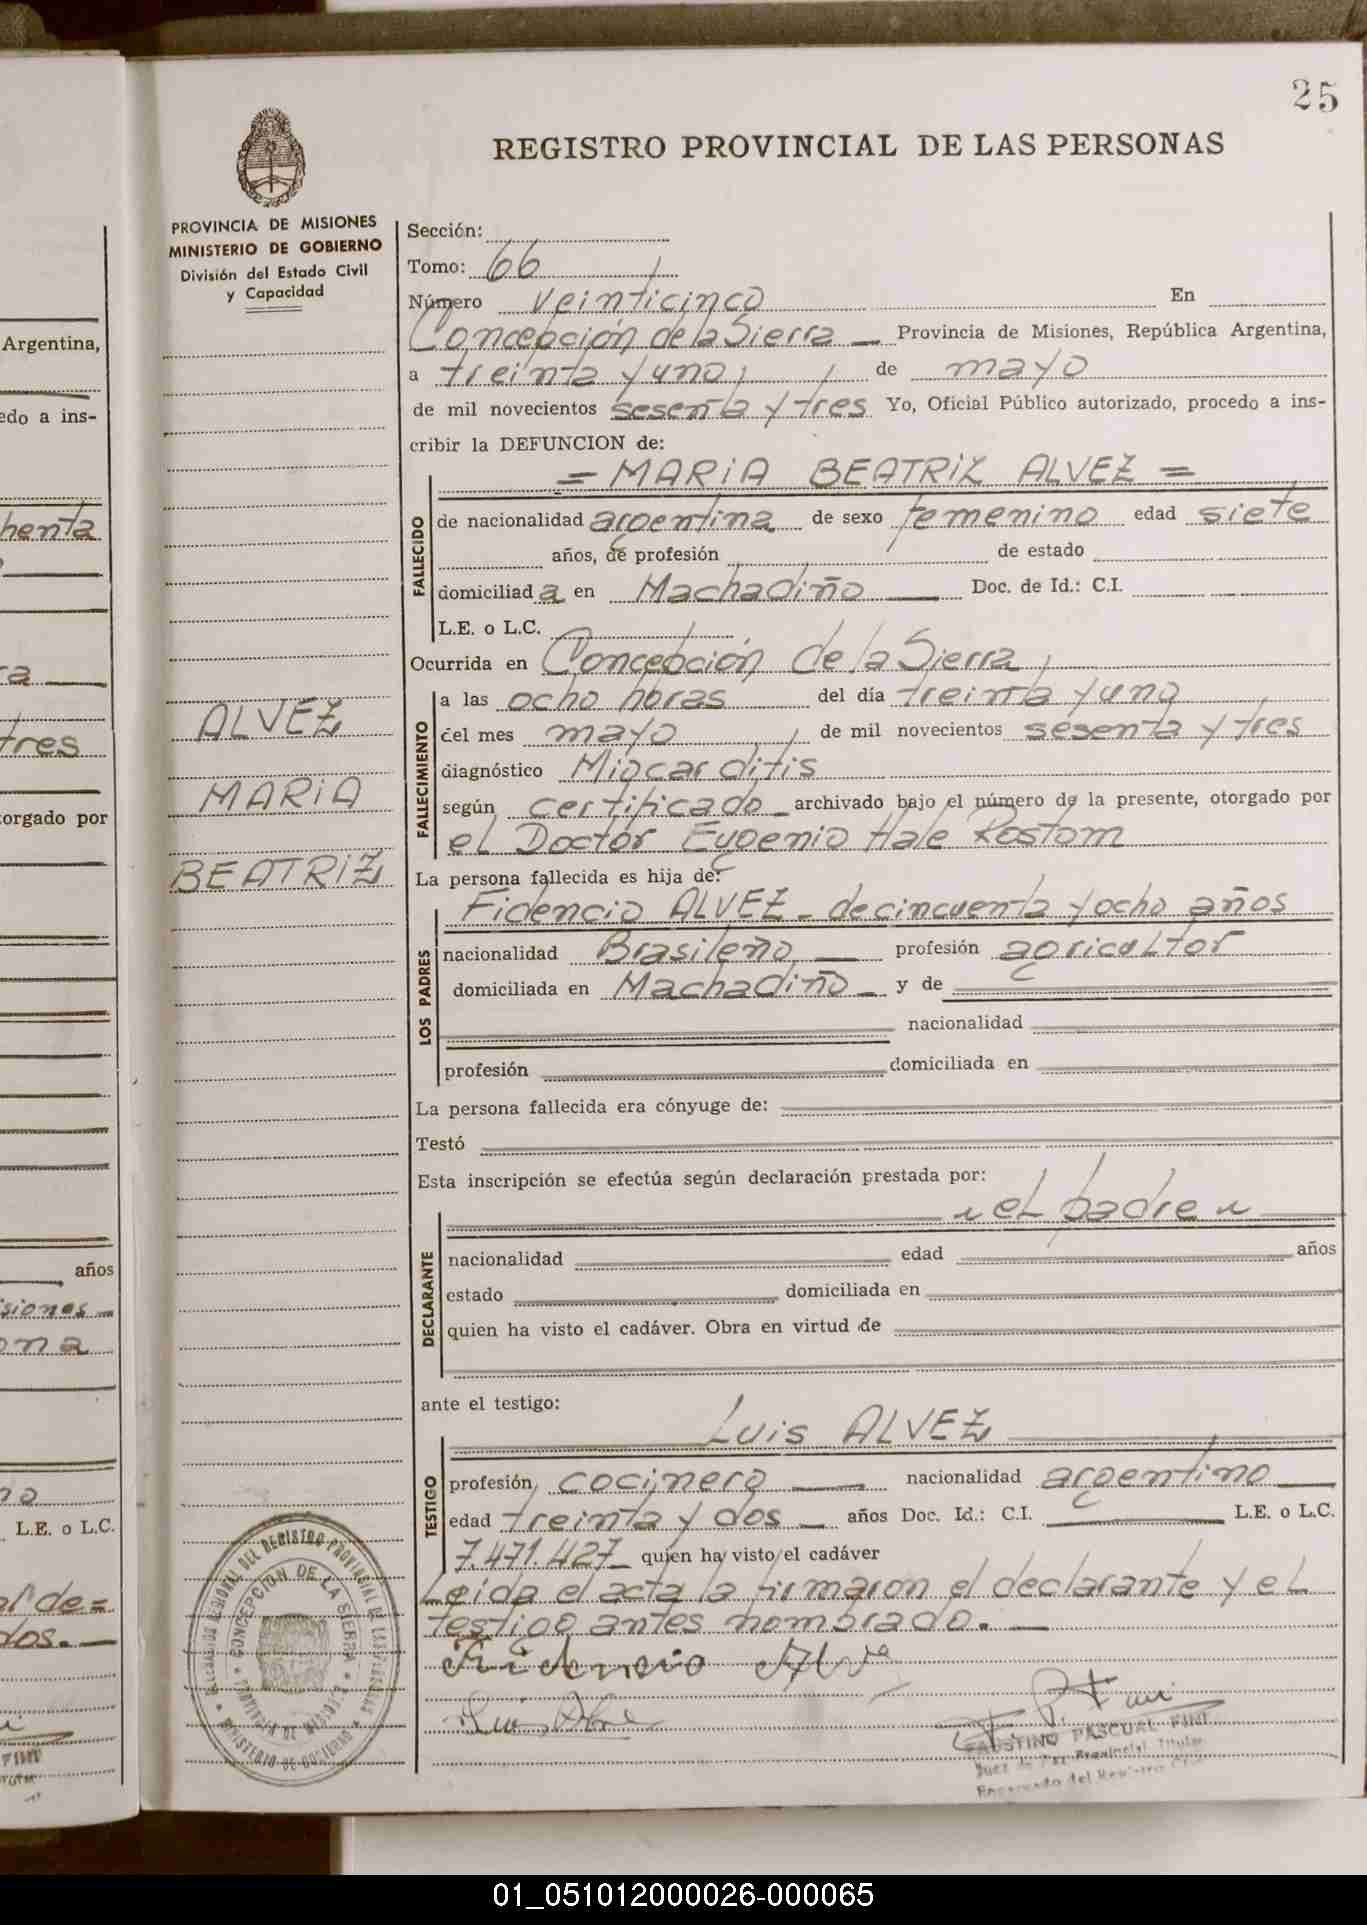 25
REGISTRO PROVINCIAL DE LAS PERSONAS
PROVINCIA DE MISIONES
MINISTERIO DE GOBIERNO
División del Estado Civil
y Capacidad
Sección:
Tomo: 66
Número veinticinco En
Concepción de la Sierra Provincia de Misiones, República Argentina,
a treinta y uno de mayo
de mil novecientos sesenta y tres Yo, Oficial Público autorizado, procedo a ins-
cribir la DEFUNCION de:
= MARIA BEATRIZ ALVEZ =
FALLECIDO
de nacionalidad argentina de sexo femenino edad siete
años, de profesión de estado
domiciliada en Machadiño Doc. de Id.: C.I.
L.E. o L.C.
Ocurrida en Concepción de la Sierra
FALLECIMIENTO
a las ocho horas del día treinta y uno
del mes mayo de mil novecientos sesenta y tres
diagnóstico Miocarditis
según certificado archivado bajo el número de la presente, otorgado por
el Doctor Eugenio Hale Rostom
La persona fallecida es hija de:
LOS PADRES
Fidencio ALVEZ - de cincuenta y ocho años
nacionalidad Brasileño profesión agricultor
domiciliada en Machadiño y de
nacionalidad
profesión domiciliada en
La persona fallecida era cónyuge de:
Testó
Esta inscripción se efectúa según declaración prestada por:
el padre
DECLARANTE
nacionalidad edad años
estado domiciliada en
quien ha visto el cadáver. Obra en virtud de
ante el testigo:
Luis ALVEZ
TESTIGO
profesión cocinero nacionalidad argentino
edad treinta y dos años Doc. Id.: C.I. L.E. o L.C.
7.471.427 quien ha visto el cadáver
Leída el acta la firmaron el declarante y el
testigo antes nombrado.
Fidencio
Luis
FAUSTINO PASCUAL FINI
Juez de Paz Provincial Titular
Encargado del Registro Civil
ALVEZ
MARIA
BEATRIZ
REGISTRO PROVINCIAL DE LAS PERSONAS
CONCEPCION DE LA SIERRA
PROVINCIA DE MISIONES
MINISTERIO DE GOBIERNO
Argentina,
edo a ins-
henta
ra
tres
torgado por
años
isiones
ona
L.E. o L.C.
al de=
dos.
01_051012000026-000065